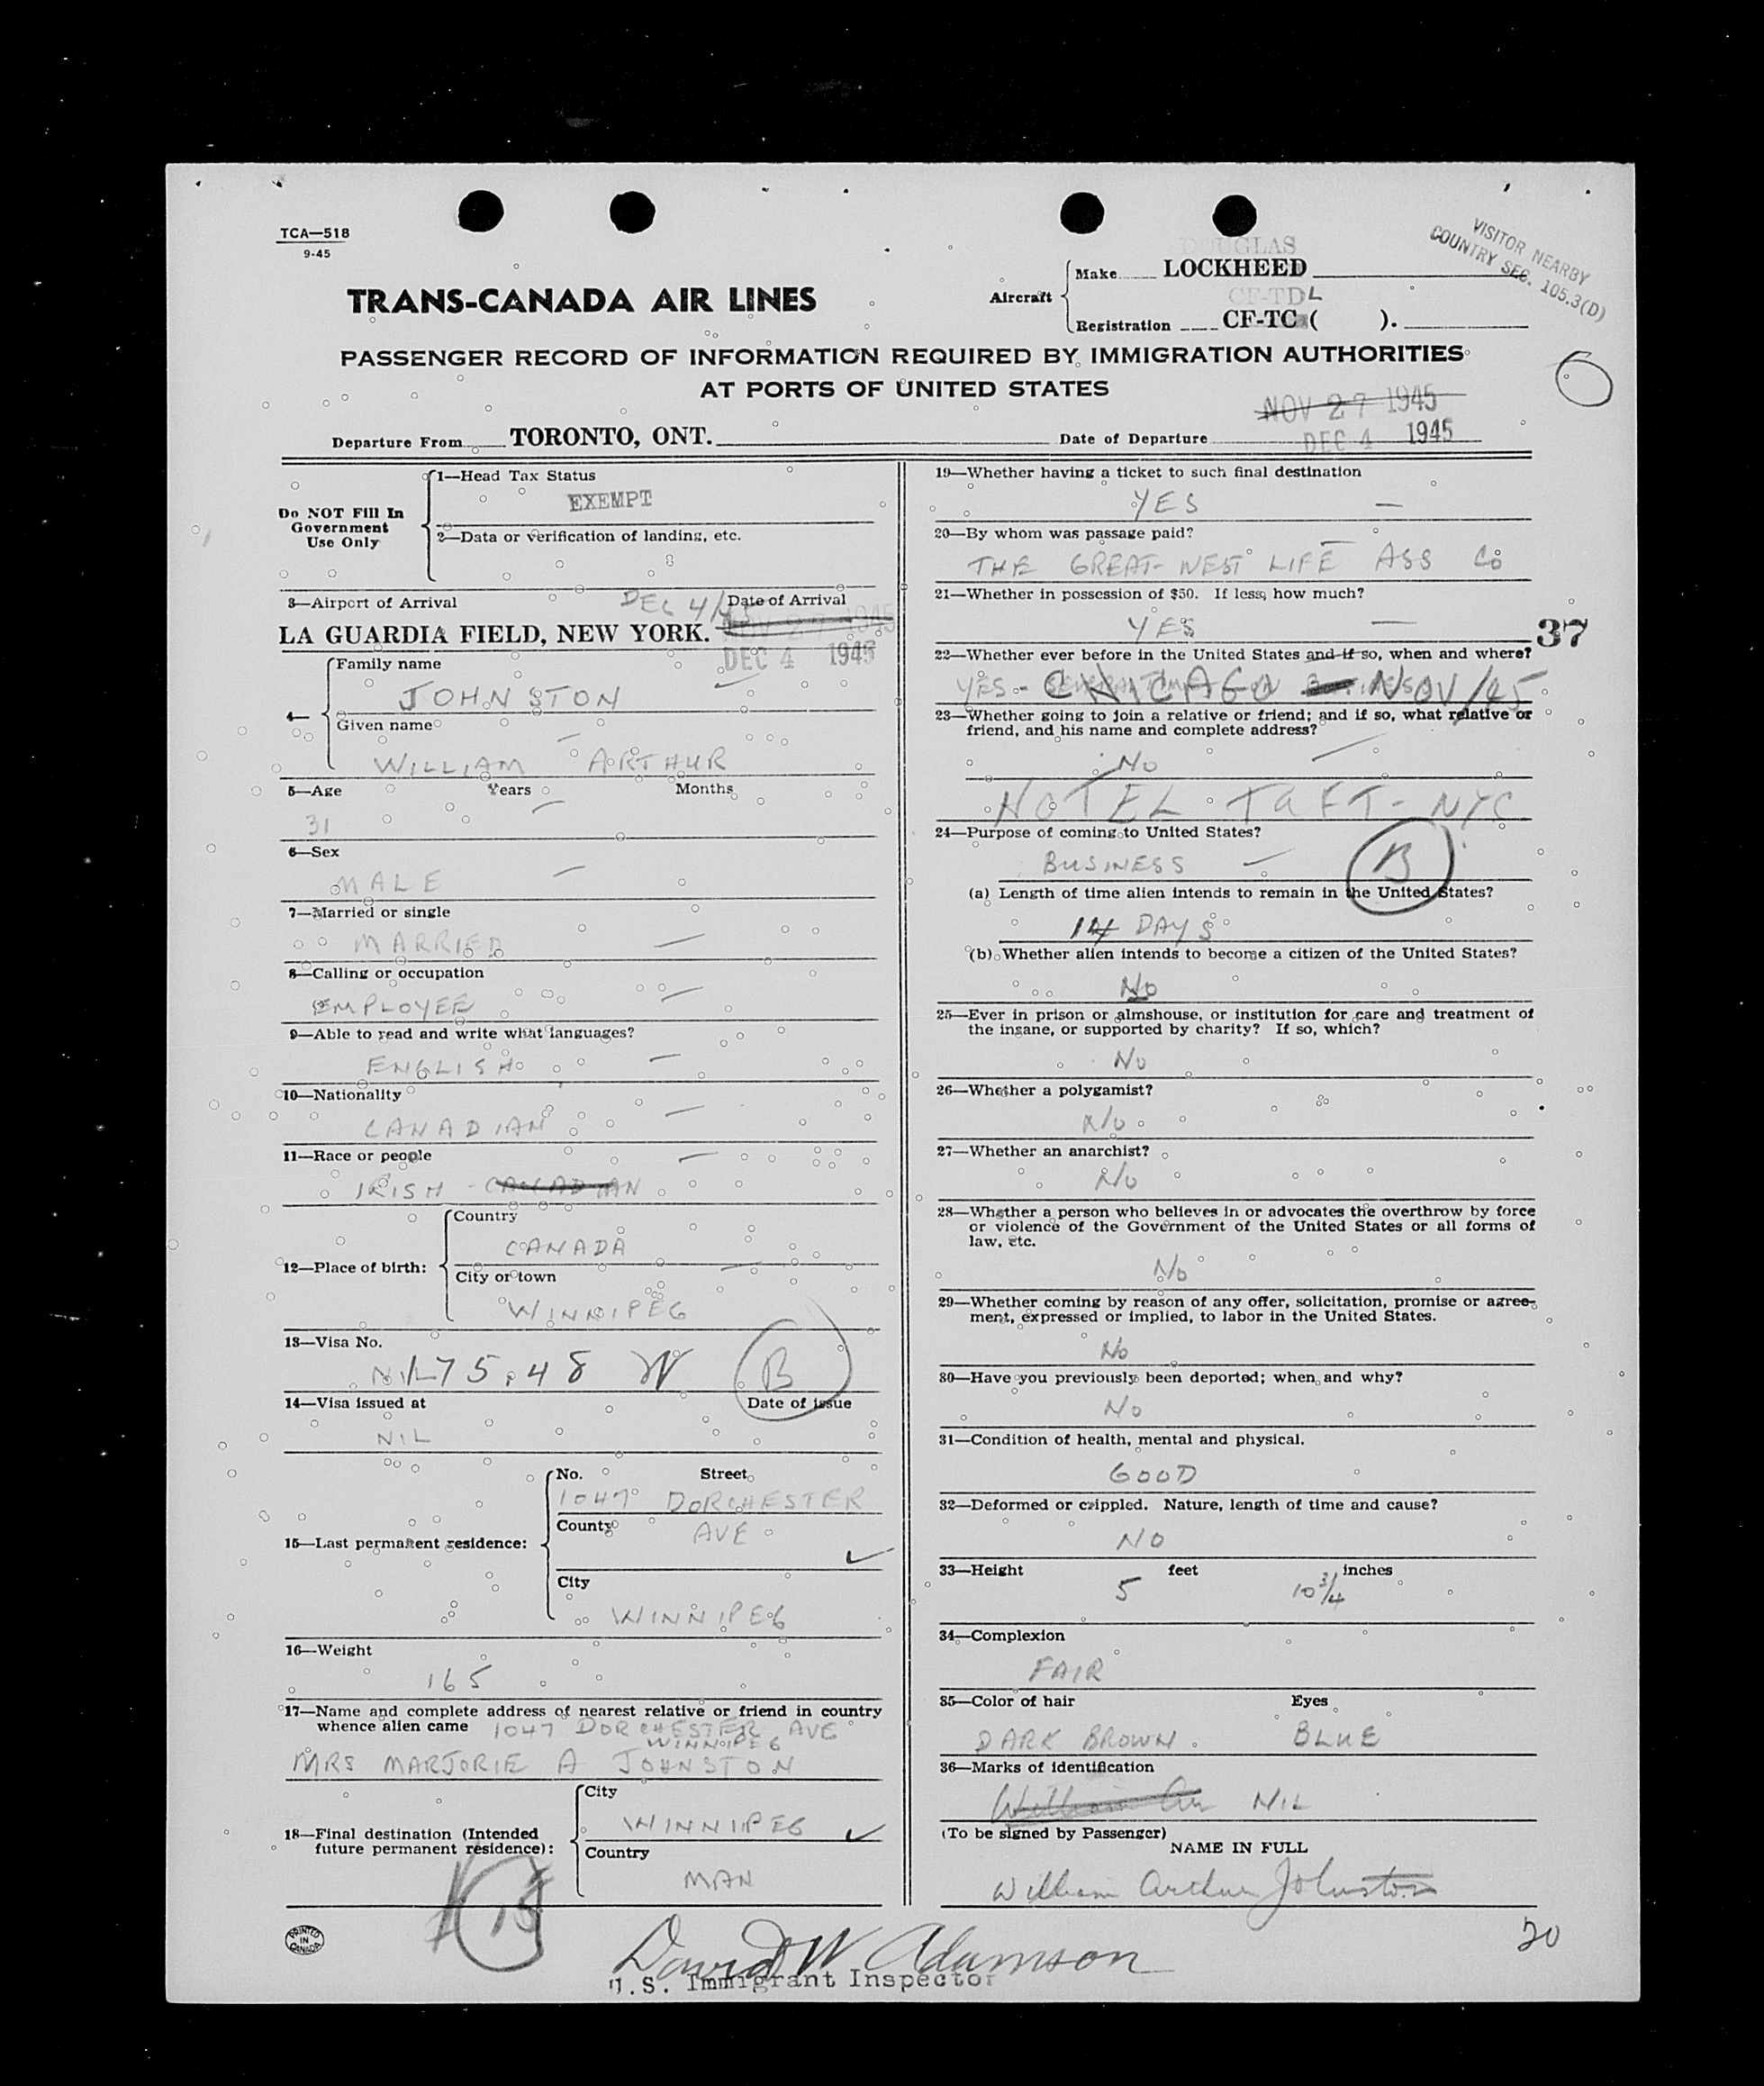 TCA—518
9-45
VISITOR NEARBY
COUNTRY SEC. 105.3(D)
DOUGLAS
Aircraft Make LOCKHEED
CF-TDL
Registration CF-TC ( ).
TRANS-CANADA AIR LINES
PASSENGER RECORD OF INFORMATION REQUIRED BY IMMIGRATION AUTHORITIES
AT PORTS OF UNITED STATES
NOV 27 1945
Departure From TORONTO, ONT. Date of Departure DEC 4 1945
Do NOT Fill In
Government
Use Only
1—Head Tax Status
EXEMPT
2—Data or verification of landing, etc.
3—Airport of Arrival DEC 4/45 Date of Arrival
LA GUARDIA FIELD, NEW YORK. NOV 27 1945
DEC 4 1945
4— Family name
JOHNSTON
Given name
WILLIAM ARTHUR
5—Age Years Months
31
6—Sex
MALE
7—Married or single
MARRIED
8—Calling or occupation
EMPLOYEE
9—Able to read and write what languages?
ENGLISH
10—Nationality
CANADIAN
11—Race or people
IRISH - CANADIAN
12—Place of birth:
Country
CANADA
City or town
WINNIPEG
13—Visa No.
NIL 75.48 W B
14—Visa issued at Date of issue
NIL
15—Last permanent residence:
No. Street
1047 DORCHESTER
County AVE
City
WINNIPEG
16—Weight
165
17—Name and complete address of nearest relative or friend in country
whence alien came 1047 DORCHESTER AVE
WINNIPEG
MRS MARJORIE A JOHNSTON
18—Final destination (Intended
future permanent residence):
City
WINNIPEG
Country
MAN
19—Whether having a ticket to such final destination
YES —
20—By whom was passage paid?
THE GREAT-WEST LIFE ASS Co
21—Whether in possession of $50. If less, how much?
YES —
37
22—Whether ever before in the United States and if so, when and where?
YES - CHICAGO NOV/45
23—Whether going to join a relative or friend; and if so, what relative or
friend, and his name and complete address?
No
HOTEL TAFT - NYC
24—Purpose of coming to United States?
BUSINESS — B
(a) Length of time alien intends to remain in the United States?
14 DAYS
(b) Whether alien intends to become a citizen of the United States?
No
25—Ever in prison or almshouse, or institution for care and treatment of
the insane, or supported by charity? If so, which?
No
26—Whether a polygamist?
No
27—Whether an anarchist?
No
28—Whether a person who believes in or advocates the overthrow by force
or violence of the Government of the United States or all forms of
law, etc.
No
29—Whether coming by reason of any offer, solicitation, promise or agree-
ment, expressed or implied, to labor in the United States.
No
30—Have you previously been deported; when and why?
No
31—Condition of health, mental and physical.
GOOD
32—Deformed or crippled. Nature, length of time and cause?
NO
33—Height feet inches
5 10 3/4
34—Complexion
FAIR
35—Color of hair Eyes
DARK BROWN. BLUE
36—Marks of identification
NIL
(To be signed by Passenger)
NAME IN FULL
William Arthur Johnston
PRINTED
IN
CANADA
20
David W Adamson
U.S. Immigrant Inspector